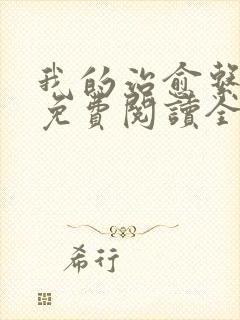 我的治愈繫
免費閱讀全
希行